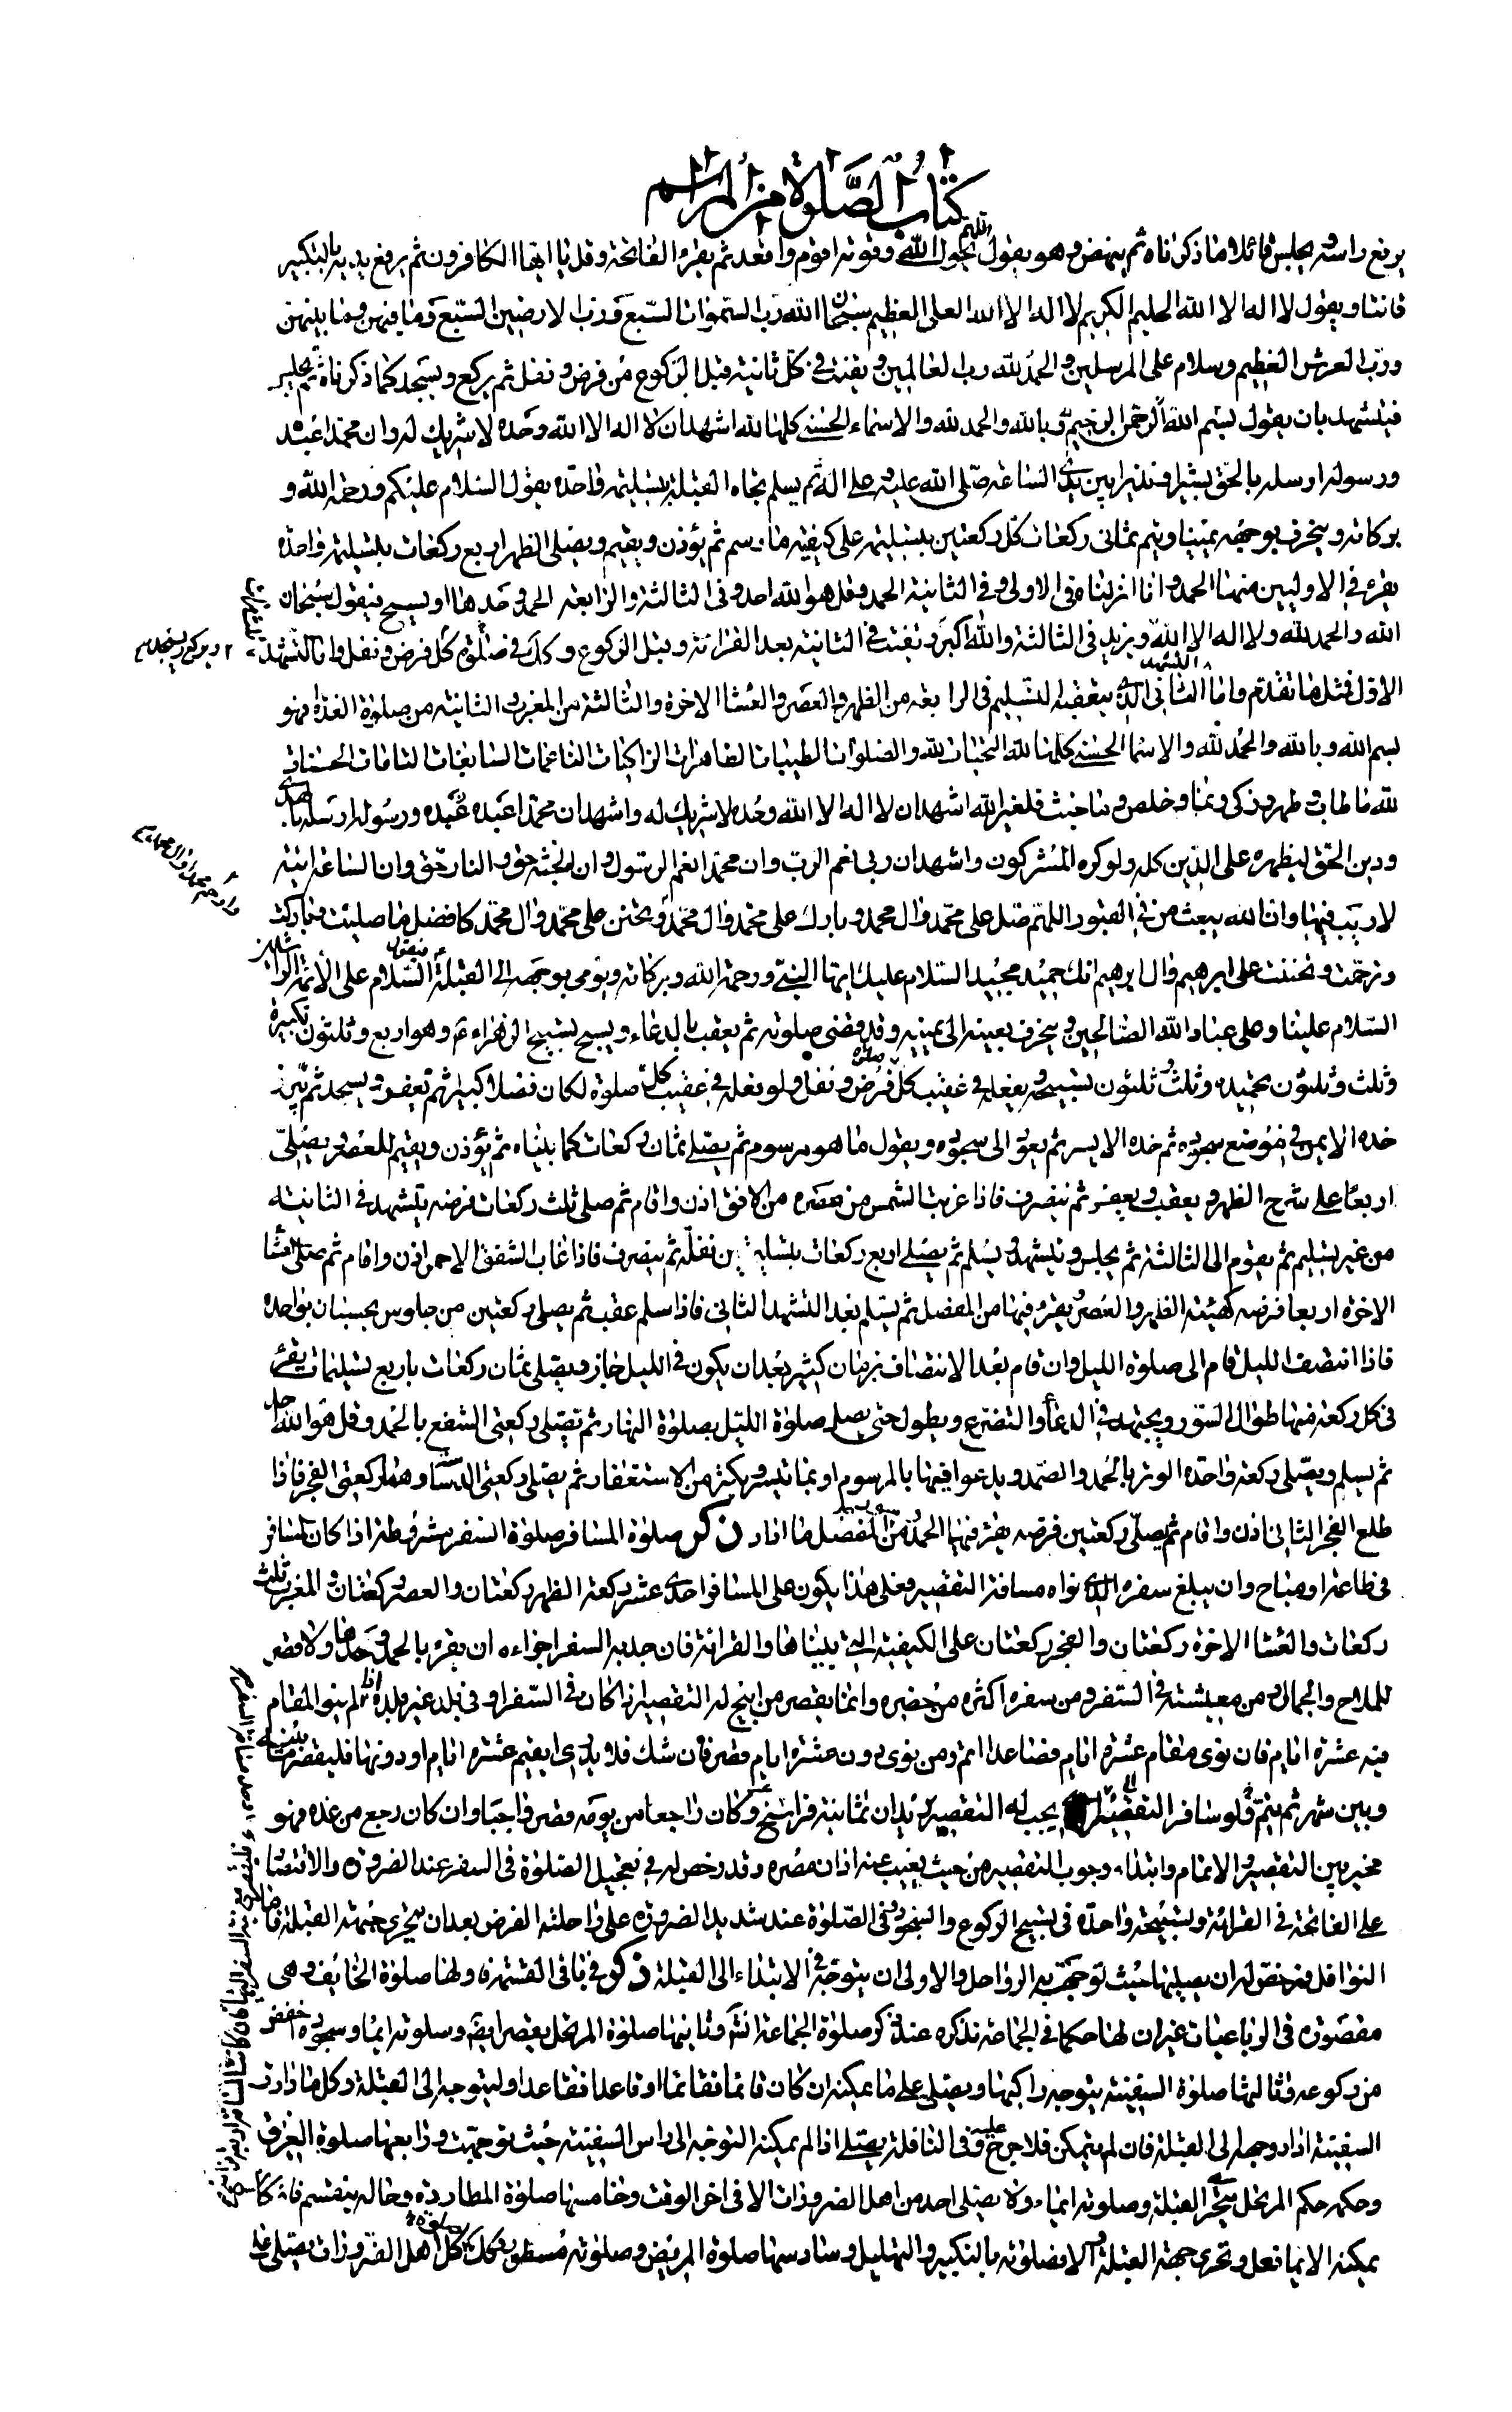 كتاب الصلوة من المراسم
يرفع راسه و يجلس قائلا ما ذكرناه ثم ينهض و هو يقول بحول الله و قوته اقوم و اقعد ثم يقرء الفاتحة و قل يا ايها الكافرون ثم يرفع يديه بالتكبير
قانتا و يقول لا اله الا الله الحليم الكريم لا اله الا الله العلى العظيم سبحان الله رب السموات السبع و رب الارضين السبع و ما فيهن و ما بينهن
و رب العرش العظيم و سلام على المرسلين و الحمد لله رب العالمين و يقنت فى كل ثانية قبل الركوع من فرض و نفل ثم يركع و يسجد كما ذكرناه ثم يجلس
فيتشهد بان يقول بسم الله الرحمن الرحيم و بالله و الحمد لله و الاسماء الحسنى كلها لله اشهد ان لا اله الا الله وحده لا شريك له و ان محمدا عبده
و رسوله ارسله بالحق بشيرا و نذيرا بين يدى الساعة صلى الله عليه و على اله ثم يسلم تجاه القبلة بتسليمة واحدة يقول السلام عليكم و رحمة الله و
بركاته و ينحرف بوجهه يمينا و يتم ثمانى ركعات كل ركعتين بتسليمة على كيفية ما رسم ثم يؤذن و يقيم و يصلى الظهر اربع ركعات بتسليمة واحدة
يقرء فى الاوليين منهما الحمد و انا انزلناه فى الاولى و فى الثانية الحمد و قل هو الله احد و فى الثالثة و الرابعة الحمد وحدها او يسبح فيقول سبحان
الله و الحمد لله و لا اله الا الله و يزيد فى الثالثة و الله اكبر و يقنت فى الثانية بعد القرائة و قبل الركوع و كذلك فى صلوة كل فرض و نفل و اما التشهد
الاول فمثل ما تقدم و اما الثانى الذى يتعقبه التسليم فى الرابعة من الظهر و العصر و العشا الاخرة و الثالثة من المغرب و الثانية من صلوة الغداة فهو
بسم الله و بالله و الحمد لله و الاسما الحسنى كلها لله التحيات لله و الصلوات الطيبات الطاهرات الزاكيات الناعمات السابغات التامات الحسنات
لله ما طاب و طهر و زكى و نما و خلص و ما خبث فلغير الله اشهد ان لا اله الا الله وحده لا شريك له و اشهد ان محمدا عبده و رسوله ارسله بالهدى
و دين الحق ليظهره على الدين كله و لو كره المشركون و اشهد ان ربى نعم الرب و ان محمدا نعم الرسول و ان الجنة حق و النار حق و ان الساعة اتية
لا ريب فيها و ان الله يبعث من فى القبور اللهم صل على محمد و ال محمد و بارك على محمد و ال محمد و تحنن على محمد و ال محمد كافضل ما صليت و باركت
و ترحمت و تحننت على ابرهيم و ال ابرهيم انك حميد مجيد السلام عليك ايها النبى و رحمة الله و بركاته و يؤمى بوجهه الى القبلة فيقول السلام على الائمة الراشدين
السلام علينا و على عباد الله الصالحين و ينحرف بعينه الى يمينه و قد قضى صلوته ثم يعقب بالدعاء و يسبح تسبيح الزهراء ع و هو اربع و ثلثون تكبيرة
و ثلث و ثلثون تحميدة و ثلث و ثلثون تسبيحة يفعله فى عقيب كل فرض و نفل و لو فعله فى عقيب كل صلوة لكان فضلا كبيرا ثم يعفر و يسجد ثم
خده الايمن فى موضع سجوده ثم خده الايسر ثم يعود الى سجوده و يقول ما هو مرسوم ثم يصلى ثمان ركعات كما بيناه ثم يؤذن و يقيم للعصر و يصلى
اربعا على شرح الظهر و يعقب و يعفر ثم ينصرف فاذا غربت الشمس من الافق اذن و اقام ثم صلى ثلث ركعات فرضه يتشهد فى الثانية
من غير تسليم ثم يقوم الى الثالثة ثم يجلس و يتشهد و يسلم ثم يصلى اربع ركعات نفله ثم ينصرف فاذا غاب الشفق الاحمر اذن و اقام ثم صلى العشا
الاخرة اربعا فرضه كهيئة الظهر و العصر يقرء فيها من المفصل ثم يسلم بعد التشهد الثانى فاذا سلم عقب ثم يصلى ركعتين من جلوس يحسبان بواحدة
فاذا انتصف الليل قام الى صلوة الليل و ان قام بعد الانتصاف بزمان كثير بعد ان يكون فى الليل جاز و يصلى ثمان ركعات باربع تسليمات يقرء
فى كل ركعة منها طوال السور و يجتهد فى الدعاء و التضرع و يطول حتى يصل صلوة الليل بصلوة النهار ثم يصلى ركعتى الشفع بالحمد و قل هو الله احد
ثم يسلم و يصلى ركعة واحدة الوتر بالحمد و الصمد و يدعو فيها بالمرسوم او بما تيسر و يكثر من الاستغفار ثم يصلى ركعتى الدساسة و هما ركعتى الفجر فاذا
طلع الفجر الثانى اذن و اقام ثم يصلى ركعتين فرضه يقرء فيهما الحمد و سورة من المفصل ما اراد ذكر صلوة المسافر صلوة السفر بشرط اذا كان السفر
فى طاعة او مباح و ان يبلغ سفره الذى نواه مسافة التقصير فعلى هذا يكون على المسافر احدى عشر ركعة الظهر ركعتان و العصر ركعتان و المغرب ثلث
ركعات و العشا الاخرة ركعتان و الفجر ركعتان على الكيفية التى بيناها و القرائة فان جد به السفر اجزاءه ان يقرء بالحمد وحدها و لا قصر
للملاح و الجمال و من معيشته فى السفر و من سفره اكثر من حضره و انما يقصر من ابيح له التقصير اذا كان فى السفر او فى بلد غير بلده اذا لم ينو المقام
فيه عشرة ايام فان نوى مقام عشرة ايام فصاعدا اتم و من نوى دون عشرة ايام قصر فان شك فلا يدرى ايقيم عشرة ايام او دونها فليقصر ما بينه
و بين شهر ثم يتم و لو سافر يجب له التقصير بريدان ثمانية فراسخ و كان راجعا من يومه قصر واجبا و ان كان رجع من غده فهو
مخير بين التقصير و الاتمام و ابتداء وجوب التقصير من حيث يغيب عنه اذان مصره و قد رخص له فى تعجيل الصلوة فى السفر عند الضرورة و الاقتصار
على الفاتحة فى القرائة و تسبيحة واحدة فى تسبيح الركوع و السجود و فى الصلوة عند شديد الضرورة على راحلته الفرض بعد ان يتحرى جهة القبلة فاما
النوافل فمرخص له ان يصليها حيث توجهت به الرواحل و الاولى ان يتوجه فى الابتداء الى القبلة ذكر فى باقى القسمة و لها صلوة الخائف و هى
مقصورة فى الرباعيات غير ان لها حكما فى الجماعة نذكره عند ذكر صلوة الجماعة انش و ثانيها صلوة المرتحل يقصر ايضا و صلوته ايماء و سجوده اخفض
من ركوعه و ثالثها صلوة السفينة يتوجه راكبها و يصلى على ما يمكنه ان كان قائما فقائما او قاعدا فقاعدا و ليتوجه الى القبلة و كل ما دارت
السفينة ادار وجهه الى القبلة فان لم يتمكن فلا حرج عليه و فى النافلة يصلى اذا لم يمكنه التوجه الى راس السفينة حيث توجهت و رابعها صلوة الغرق
و حكمه حكم المرتحل يتحرى القبلة و صلوته ايماء و لا يصلى احد من اهل الضرورات الا فى اخر الوقت و خامسها صلوة المطاردة و حاله ينقسم فان كان
يمكنه الايما فعل و تحرى جهة القبلة و الا فصلوته بالتكبير و التهليل و سادسها صلوة المريض و صلوته و كل اهل الضرورات يصلى على